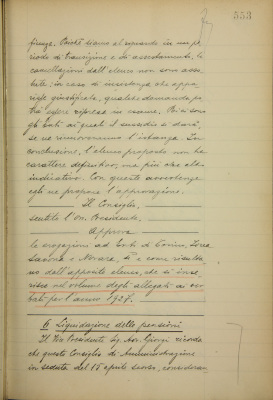 553
firenze. Poiché siamo al riguardo in un pe
riodo di transizione e di assestamento, le
cancellazioni dall'elenco non sono asso
lute: in caso di insistenza che appa
risse giustificata, qualche domanda po
trà essere ripresa in esame. Vi sono
gli Enti ai quali il sussidio si darà,
se ne rinnoveranno l'istanza. In
conclusione, l'elenco proposto non ha
carattere definitivo, ma più che altro
indicativo. Con queste avvertenze
egli ne propone l'approvazione.
Il Consiglio,
sentito l'On. Presidente,
Approva
le erogazioni ad Enti di Torino,
e Novara, come risulta
no dall'apposito elenco, che si inse
risce nel volume degli allegati ai ver
bali per l'anno 1927.
6) Liquidazione delle pensioni
Il Vice Presidente Sig. Avv. Giorgi ricorda
che questo Consiglio di Amministrazione
in seduta del 15 aprile scorso, consideran